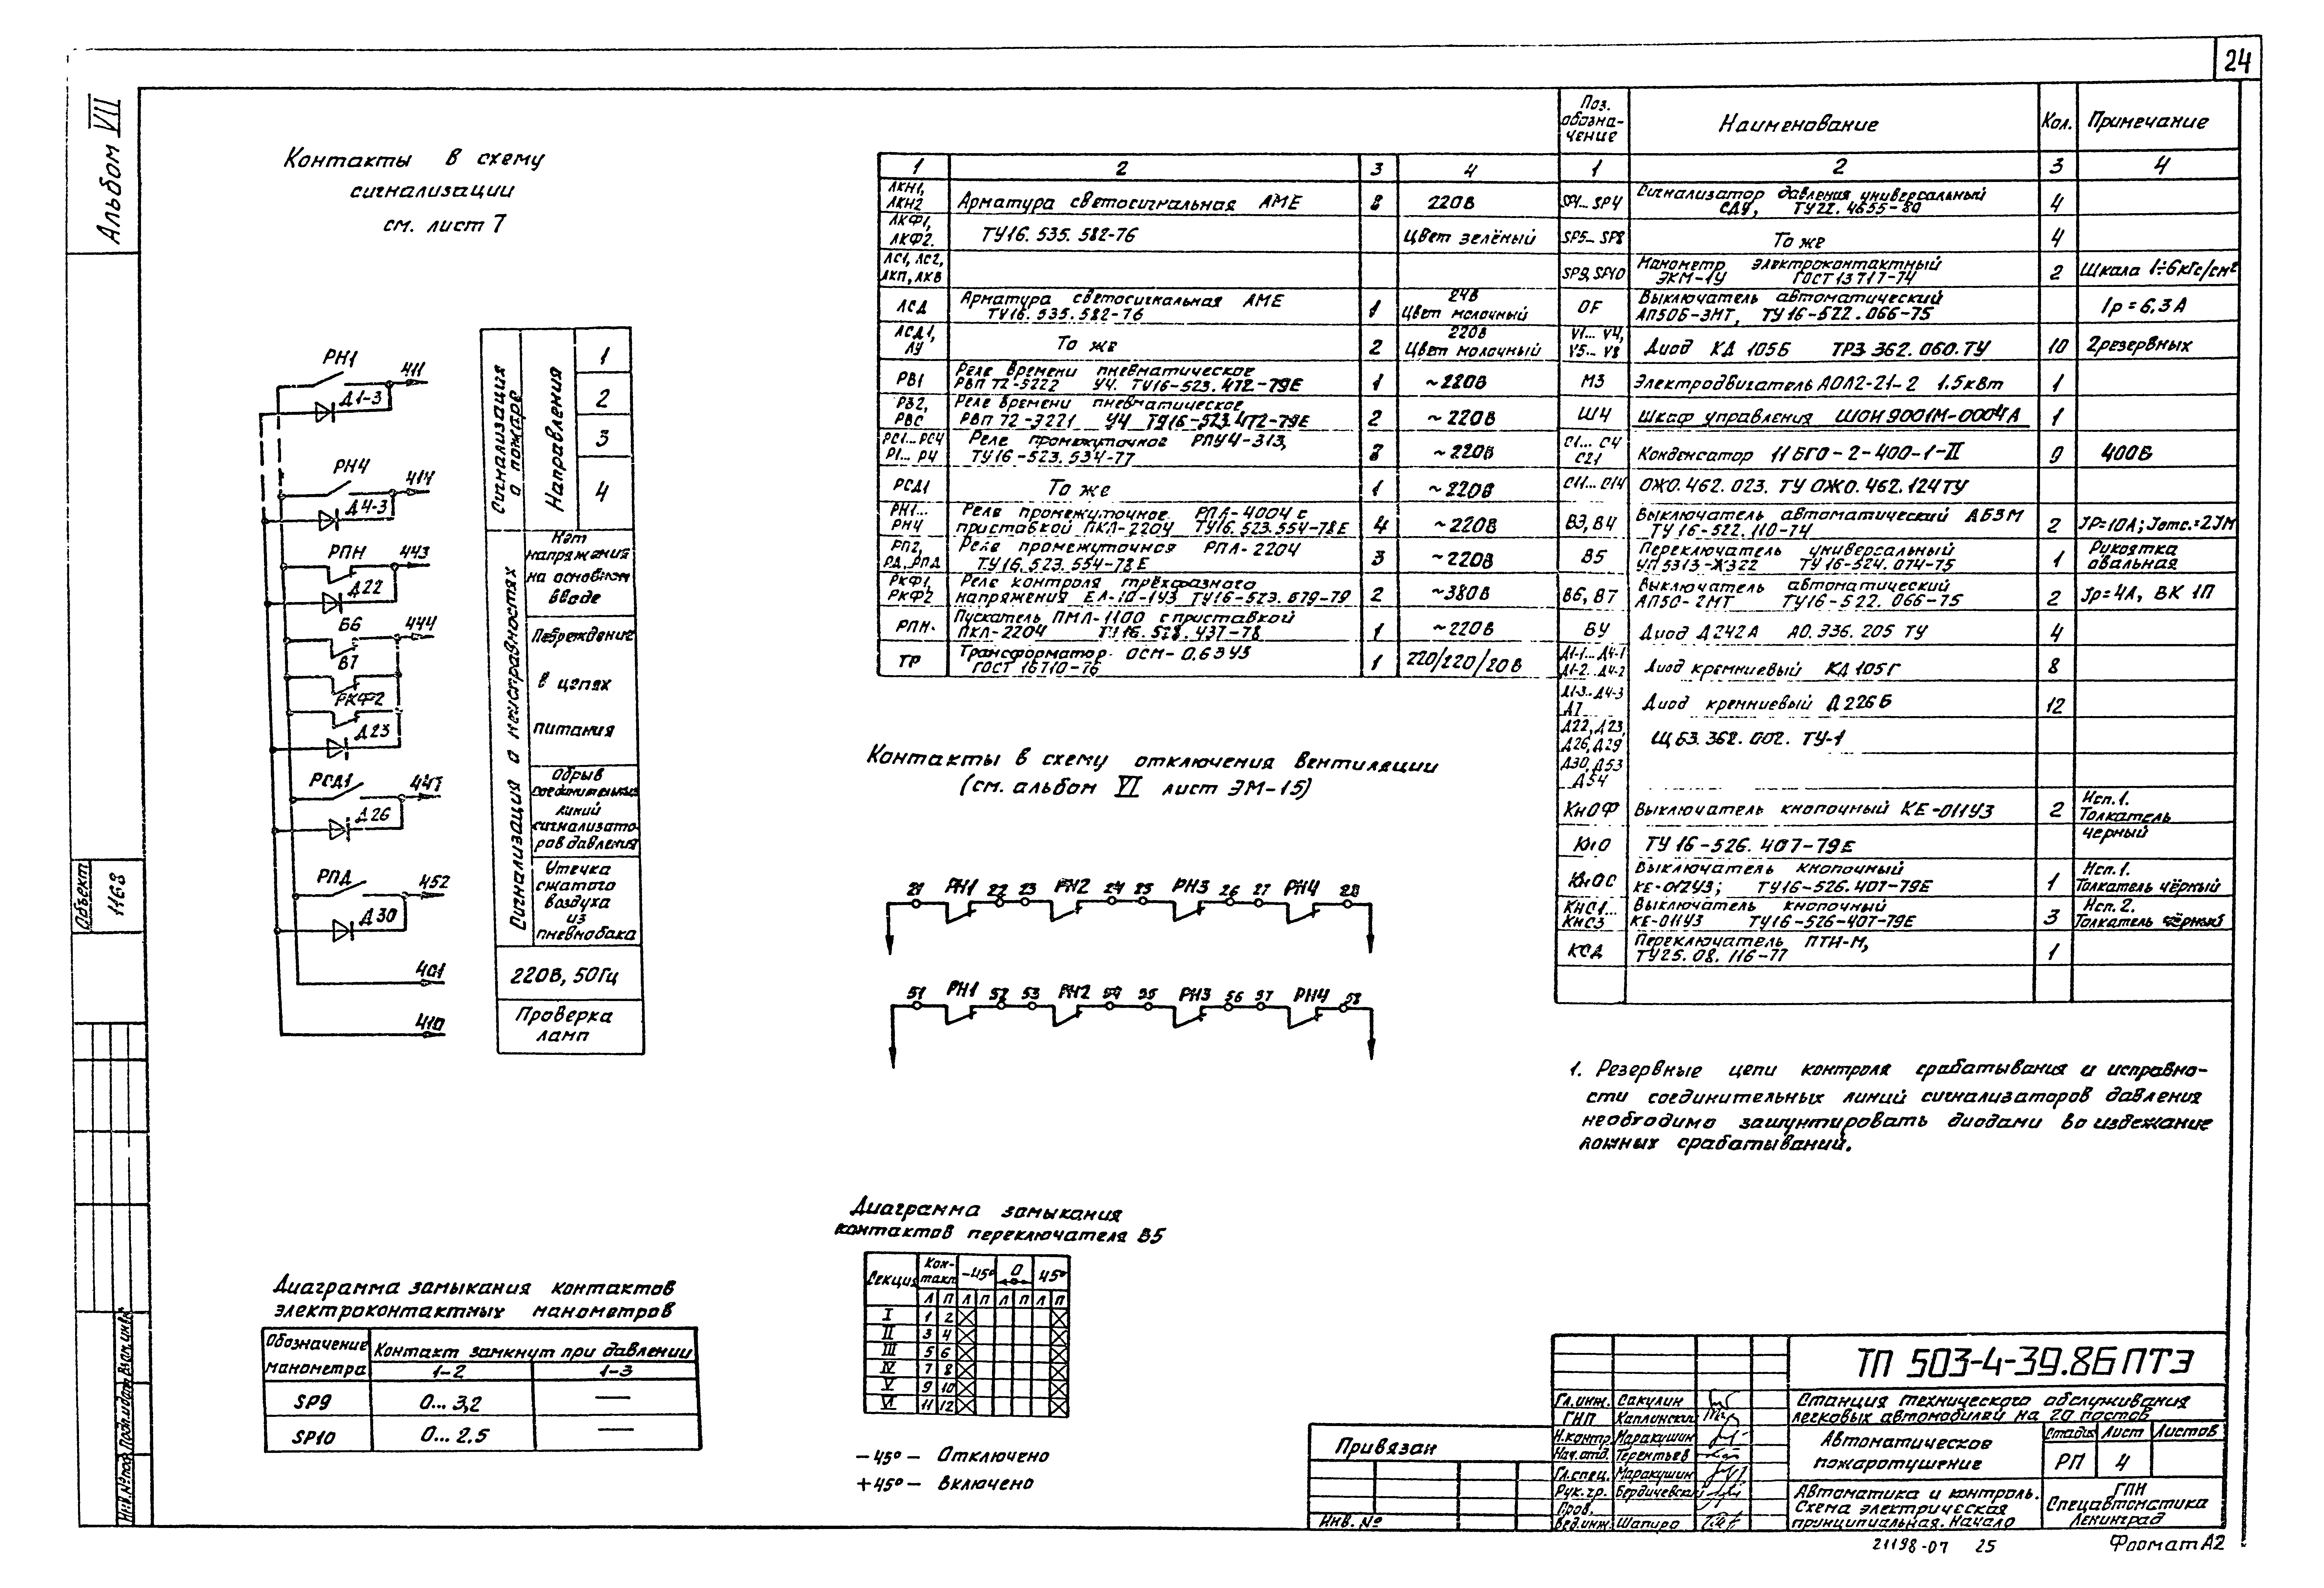 24
Альбом VII
Контакты в схему
сигнализации
см. лист 7
РН1
411
Д1-3
РН4
414
Д4-3
РПН
443
Д22
В6
444
В7
РКФ2
Д23
РСД1
447
Д26
РПД
452
Д30
401
410
Сигнализация
о пожаре
Направления
1
2
3
4
Сигнализация о неисправностях
Нет
напряжения
на основном
вводе
Повреждение
в цепях
питания
Обрыв
соединительных
линий
сигнализато-
ров давления
Утечка
сжатого
воздуха
из
пневмобака
220В, 50Гц
Проверка
ламп
1 2 3 4
ЛКН1,
ЛКН2 Арматура светосигнальная АМЕ 8 220В
ЛКФ1,
ЛКФ2. ТУ16.535.582-76 Цвет зелёный
ЛС1, ЛС2,
ЛКП, ЛКВ
ЛСД Арматура светосигнальная АМЕ 1 24В
ТУ16.535.582-76 Цвет молочный
ЛСД1,
ЛУ То же 2 220В
Цвет молочный
РВ1 Реле времени пневматическое
РВП 72-3222 У4. ТУ16-523.472-79Е 1 ~220В
РВ2,
РВС Реле времени пневматическое
РВП 72-3221 У4 ТУ16-523.472-79Е 2 ~220В
РС1...РС4
Р1...Р4 Реле промежуточное РПУ4-313,
ТУ16-523.534-77 8 ~220В
РСД1 То же 1 ~220В
РН1...
РН4 Реле промежуточное РПЛ-4004 с
приставкой ПКЛ-2204 ТУ16.523.554-78Е 4 ~220В
РП2,
РД, РПД Реле промежуточная РПЛ-2204
ТУ16.523.554-78Е 3 ~220В
РКФ1,
РКФ2 Реле контроля трёхфазного
напряжения ЕЛ-10-1У3 ТУ16-523.679-79 2 ~380В
РПН. Пускатель ПМЛ-1100 с приставкой
ПКЛ-2204 ТУ16.528.437-78 1 ~220В
ТР Трансформатор ОСМ-0,63У5
ГОСТ 16710-76 1 220/220/20В
Поз.
обозна-
чение Наименование Кол. Примечание
1 2 3 4
SP1...SP4 Сигнализатор давления универсальный
СДУ, ТУ22.4655-80 4
SP5...SP8 То же 4
SP9, SP10 Манометр электроконтактный
ЭКМ-1У ГОСТ 13717-74 2 Шкала 1÷6кгс/см²
QF Выключатель автоматический
АП50Б-3МТ, ТУ16-522.066-75 Iр=6,3А
V1...V4,
V5...V8 Диод КД 105Б ТРЗ 362.060.ТУ 10 2резервных
М3 Электродвигатель АОЛ2-21-2 1.5кВт 1
Ш4 Шкаф управления ШОИ9001М-0004А 1
С1...С4
С21 Конденсатор МБГО-2-400-1-II 9 400В
С11...С14 ОЖО.462.023.ТУ ОЖО.462.124ТУ
В3, В4 Выключатель автоматический АБ3М
ТУ16-522.110-74 2 Jр=10А; Jотс.=2Jн
В5 Переключатель универсальный
УП5313-Ж322 ТУ16-524.074-75 1 Рукоятка
овальная
В6, В7 Выключатель автоматический
АП50-2МТ ТУ16-522.066-75 2 Jр=4А, ВК 1П
ВУ Диод Д242А АО.336.205 ТУ 4
Д1-1...Д4-1
Д1-2...Д4-2 Диод кремниевый КД105Г 8
Д1-3..Д4-3
Д7 Диод кремниевый Д226Б 12
Д22, Д23,
Д26, Д29 ЩБ3.362.002.ТУ-1
Д30, Д53
Д54
КнОФ Выключатель кнопочный КЕ-011У3 2 Исп.1.
Толкатель
черный
КнО ТУ16-526.407-79Е
КнОС Выключатель кнопочный
КЕ-012У3; ТУ16-526.407-79Е 1 Исп.1.
Толкатель чёрный
КнС1...
КнС3 Выключатель кнопочный
КЕ-011У3 ТУ16-526-407-79Е 3 Исп.2.
Толкатель чёрный
КСД Переключатель ПТИ-М,
ТУ25.08.116-77 1
Контакты в схему отключения вентиляции
(см. альбом VI лист ЭМ-15)
21 РН1 22 23 РН2 24 25 РН3 26 27 РН4 28
51 РН1 52 53 РН2 54 55 РН3 56 57 РН4 58
1. Резервные цепи контроля срабатывания и исправно-
сти соединительных линий сигнализаторов давления
необходимо зашунтировать диодами во издежание
ложных срабатываний.
Диаграмма замыкания
контактов переключателя В5
Секция Кон-
такт -45° 0 45°
Л П Л П Л П Л П
I 1 2
II 3 4
III 5 6
IV 7 8
V 9 10
VI 11 12
-45° - Отключено
+45° - Включено
Диаграмма замыкания контактов
электроконтактных манометров
Обозначение
манометра Контакт замкнут при давлении
1-2 1-3
SP9 0...3,2 —
SP10 0...2.5 —
Объект
1168
Инв.№под. Подп. и дата Взам.инв.№
Привязан
Инв. №
ТП 503-4-39.86 ПТЭ
Гл.инж. Сакулин
ГИП Каплинский
Н.контр. Маракушин
Нач.отд. Терентьев
Гл.спец. Маракушин
Рук.гр. Бердичевский
Пров.
Вед.инж. Шапиро
Станция технического обслуживания
легковых автомобилей на 20 постов
Автоматическое
пожаротушение
Стадия Лист Листов
РП 4
Автоматика и контроль.
Схема электрическая
принципиальная. Начало
ГПИ
Спецавтоматика
Ленинград
21198-07 25
Формат А2